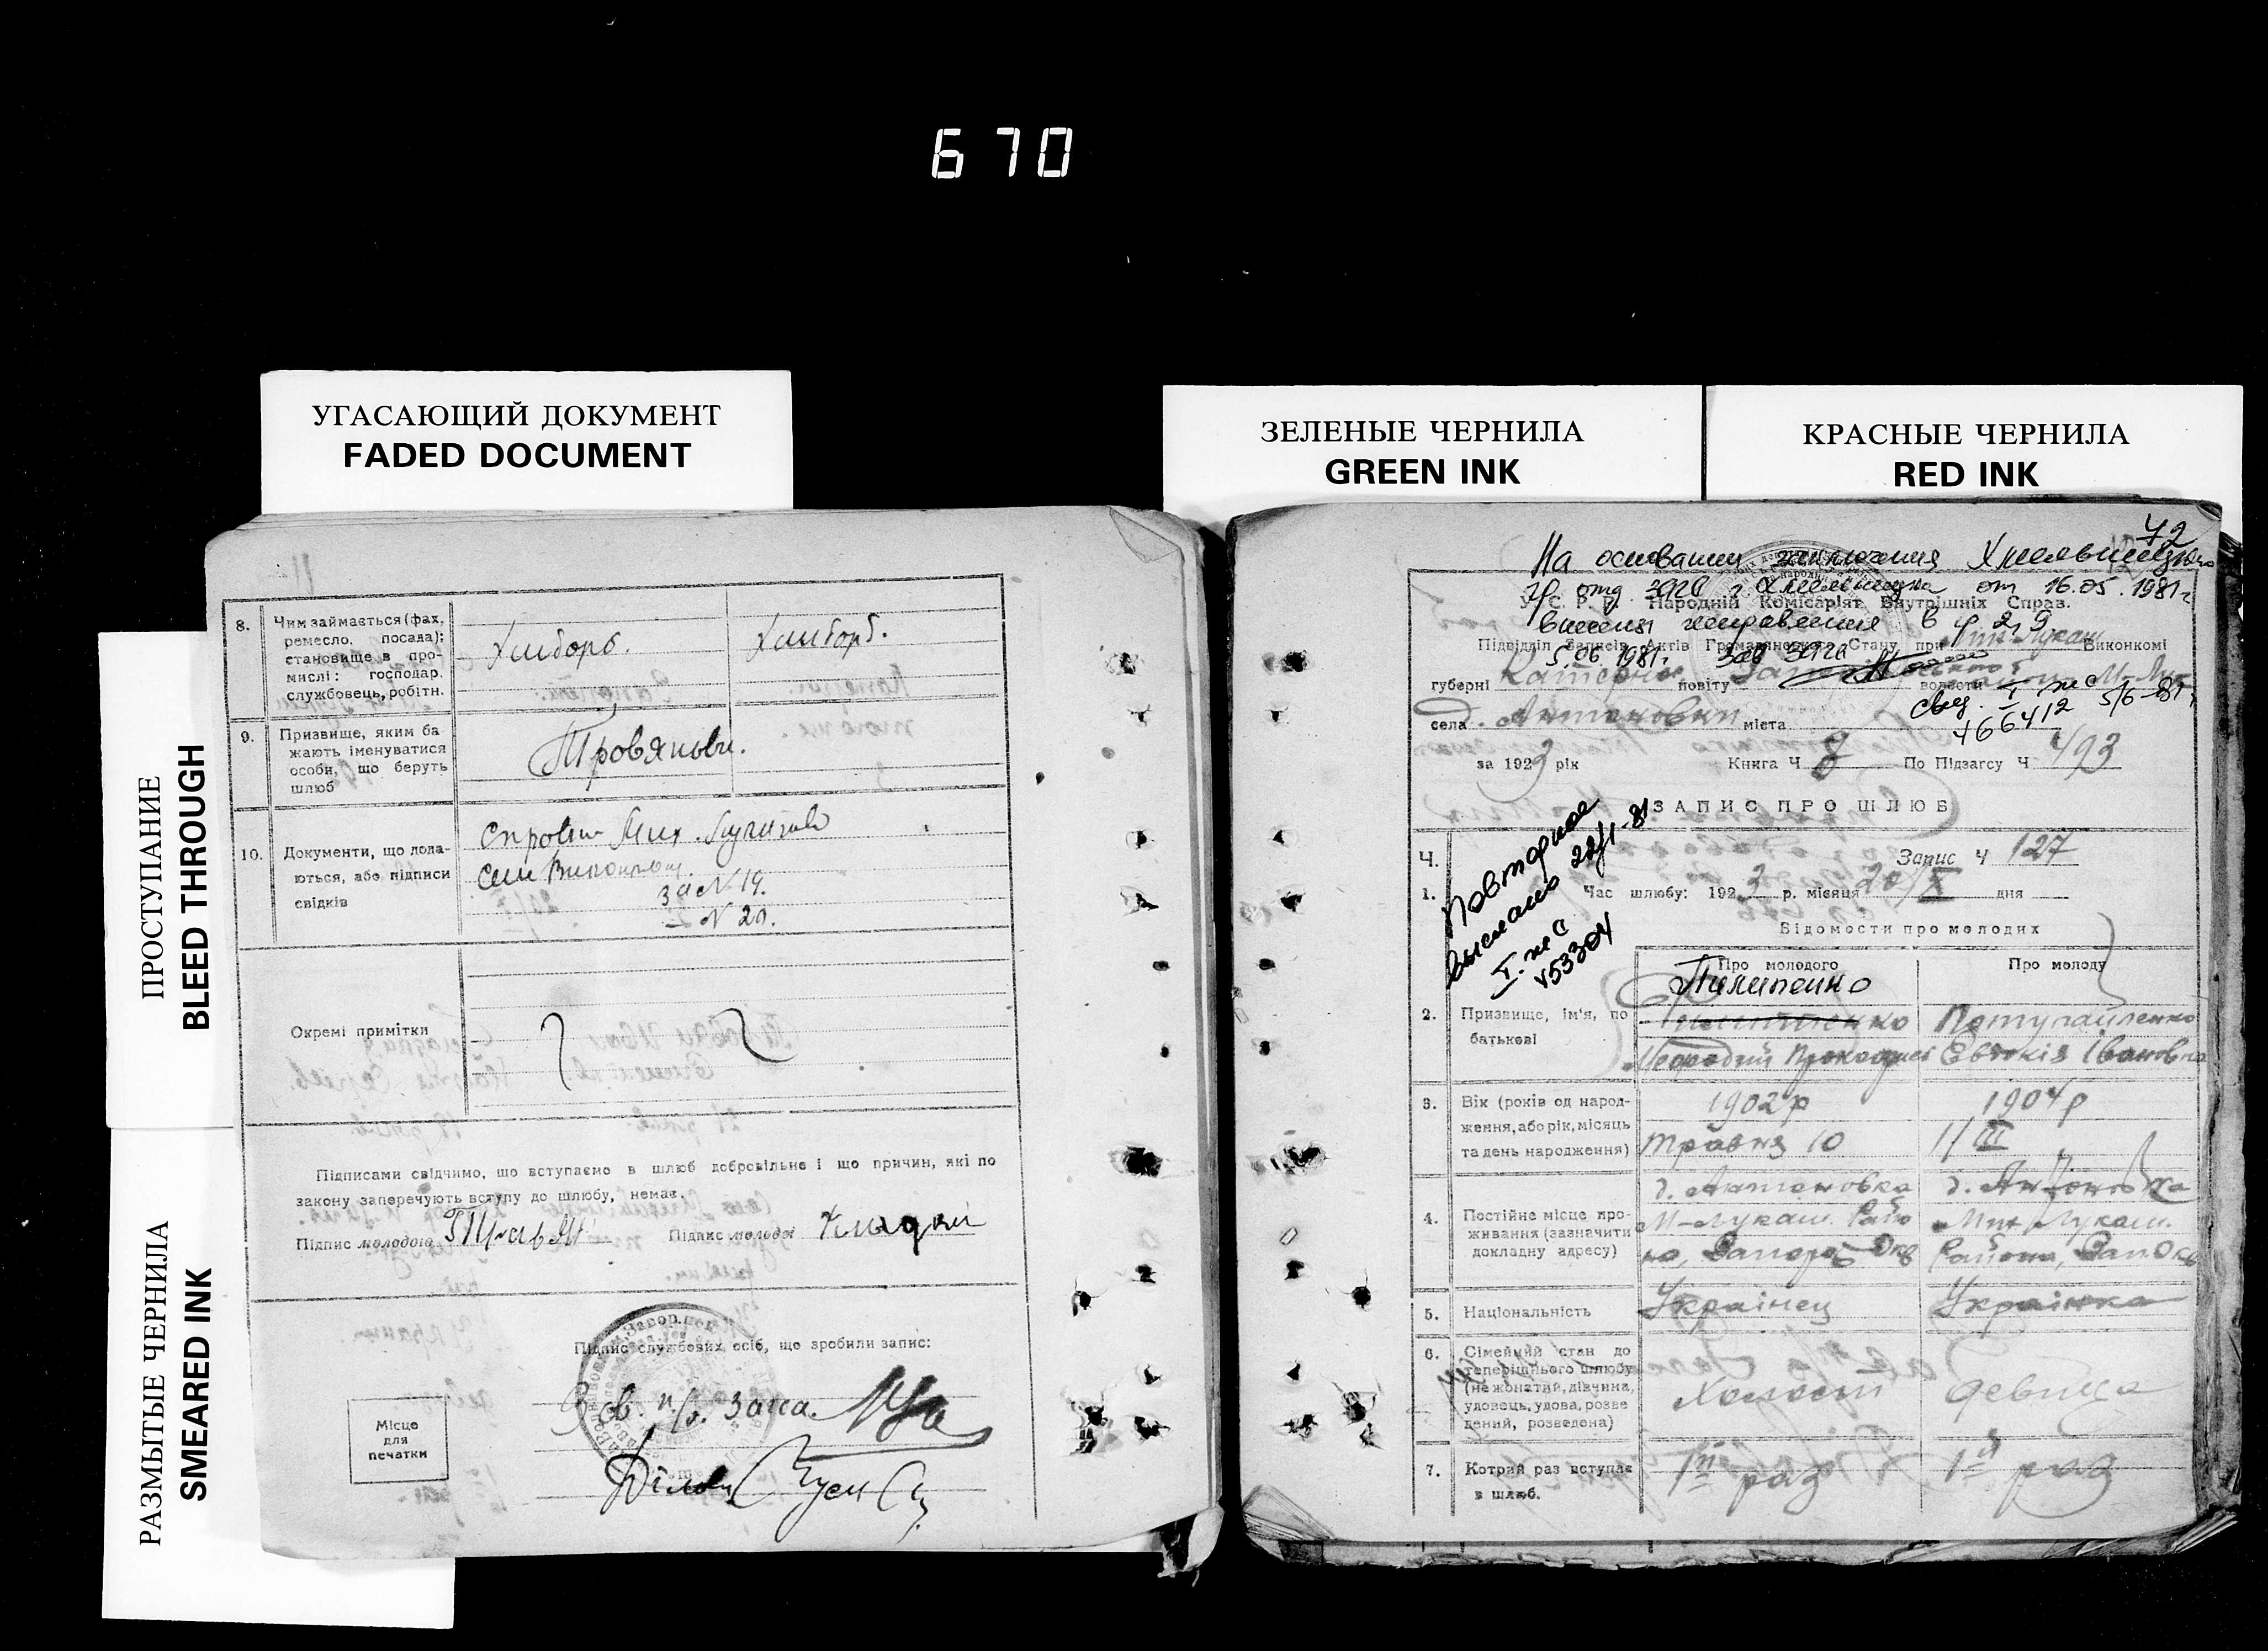 670
УГАСАЮЩИЙ ДОКУМЕНТ
FADED DOCUMENT
ЗЕЛЕНЫЕ ЧЕРНИЛА
GREEN INK
КРАСНЫЕ ЧЕРНИЛА
RED INK
ПРОСТУПАНИЕ
BLEED THROUGH
РАЗМЫТЫЕ ЧЕРНИЛА
SMEARED INK
8. Чим займається (фах,
ремесло, посада);
становище в про-
мислі: господар.
службовець, робітн.
Хлібороб. Хлібороб.
9. Призвище, яким ба-
жають іменуватися
особи, що беруть
шлюб
10. Документи, що дода-
ються, або підписи
свідків
за № 19.
№ 20.
Окремі примітки
Підписами свідчимо, що вступаємо в шлюб добровільне і що причин, які по
закону заперечують вступу до шлюбу, немає.
Підпис молодого Підпис молодої
Підпис службових осіб, що зробили запис:
Місце
для
печатки
42
На основании заключения Хмельницкого
отд ЗАГС г Хмельницка от 16.05.1981г
У. С. Р. Р. Народній Комісаріят Внутрішніх Справ.
внесены исправления в гр 2,9.
Підвідділ Записів Актів Громадянського Стану при Виконкомі
5.06.1981г. Зав ЗАГС
губерні Катерин повіту волости
свид. I жс 5/6-81г
466412
села д. Антоновки міста
за 1923 рік Книга Ч 8 По Підзагсу Ч 493
ЗАПИС ПРО ШЛЮБ
Повторное
выслано 22/I-81
I-жс
453304
Ч. Запис Ч 127
1. Час шлюбу: 1923 р. місяця 20/X дня
Відомости про молодих
Про молодого Про молоду
Пилипенко
2. Призвище, ім'я, по
батькові
Євдокія Івановна
3. Вік (років од народ-
ження, або рік, місяць
та день народження)
1902 р 1904 р
травня 10 11/III
4. Постійне місце про-
живання (зазначити
докладну адресу)
д. Антоновка д. Антоновка
М-Лукаш. Райо Мих Лукаш.
на, Запоріз Окр Района, Зап Окр
5. Національність Українец Українка
6. Сімейний стан до
теперішнього шлюбу
(нежонатий, дівчина,
удовець, удова, розве
дений, розведена)
Холост девица
7. Котрий раз вступає
в шлюб.
1й раз 1й раз